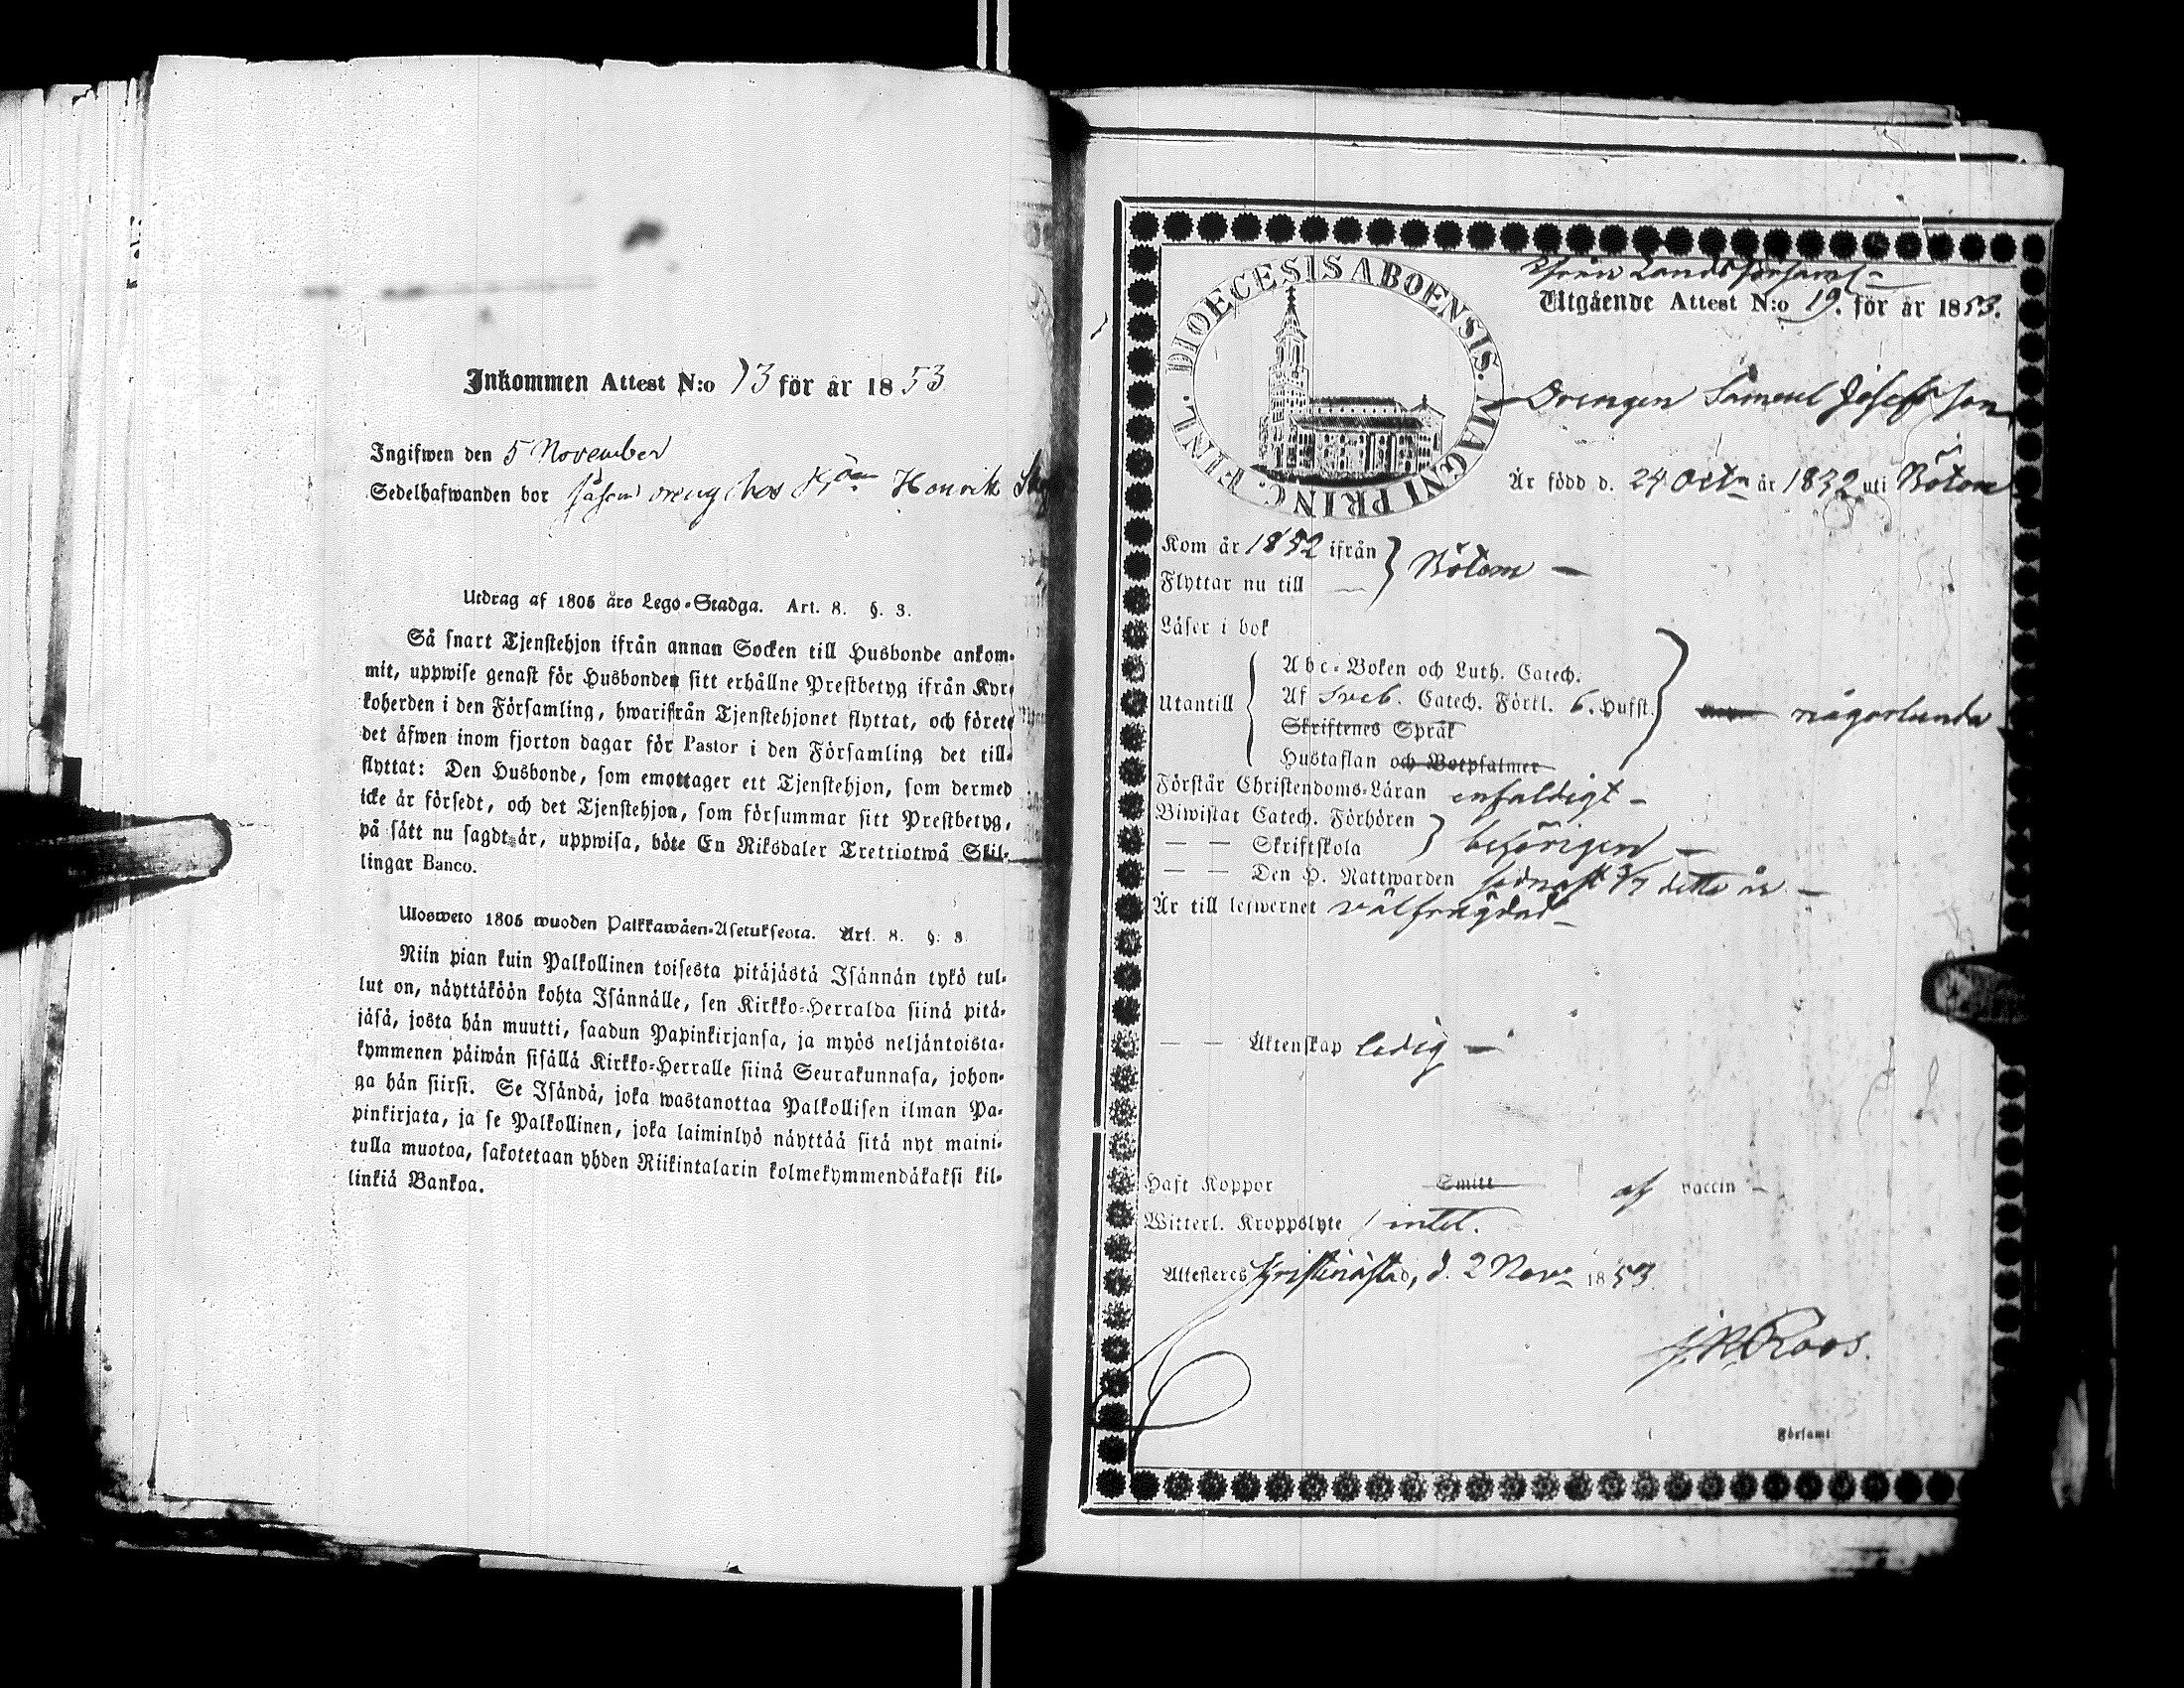 Inkommen Attest N:o 13 för år 1853
Ingifwen den 5 November
Sedelhafwanden bor såsom dreng hos Henrik
Utdrag af 1805 års Lego-Stadga. Art. 8. §. 3.
Så snart Tjenstehjon ifrån annan Socken till Husbonde ankom-
mit, uppwise genast för Husbonden sitt erhållne Prestbetyg ifrån Kyr-
koherden i den Församling, hwarifrån Tjenstehjonet flyttat, och förete
det äfwen inom fjorton dagar för Pastor i den Församling det till-
flyttat: Den Husbonde, som emottager ett Tjenstehjon, som dermed
icke är försedt, och det Tjenstehjon, som försummar sitt Prestbetyg,
på sätt nu sagdt är, uppwisa, böte En Riksdaler Trettiotwå Skil-
lingar Banco.
Ulosweto 1805 wuoden Palkkawäen-Asetuksesta. Art. 8. §. 3.
Niin pian kuin Palkollinen toisesta pitäjästä Isännän tykö tul-
lut on, näyttäköön kohta Isännälle, sen Kirkko-Herralda siinä pitä-
jäsä, josta hän muutti, saadun Papinkirjansa, ja myös neljäntoista-
kymmenen päiwän sisällä Kirkko-Herralle siinä Seurakunnasa, johon-
ga hän siirsi. Se Isändä, joka wastanottaa Palkollisen ilman Pa-
pinkirjata, ja se Palkollinen, joka laiminlyö näyttää sitä nyt maini-
tulla muotoa, sakotetaan yhden Riikintalarin kolmekymmendäkaksi kil-
linkiä Bankoa.
DIOECESIS ABOENSIS. MAGNI PRINC. FINL.
ifrån Landsförsaml
Utgående Attest N:o 19. för år 1853.
Drengen Samuel Josefsson
Är född d. 24 Octr år 1832 uti Bötom
Kom år 1852 ifrån
Flyttar nu till
Bötom
Läser i bok
Utantill
Abc-Boken och Luth. Catech.
Af Sveb. Catech. Förkl. 6. Hufst.
Skriftenes Språk
Hustaflan och Botpsalmer
någorlunda
Förstår Christendoms-Läran enfaldigt
Biwistat Catech. Förhören
— — Skriftskola
behörigen
— — Den H. Nattwarden sednast 3/7 detta år
Är till lefwernet välfrägdad
— — Äktenskap ledig
Haft Koppor Smitt af vaccin
Witterl. Kroppslyte intet.
Attesteres Kristinestad, d. 2 Novr 1853
J. N. Roos.
Församl.